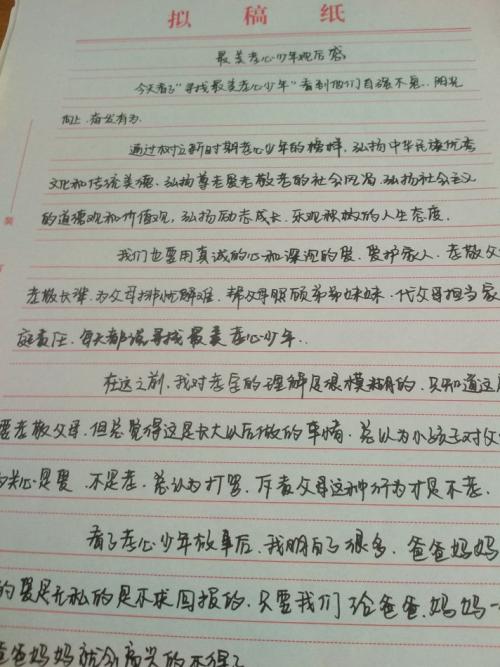 拟稿纸
最美孝心少年观后感
今天看了“寻找最美孝心少年”看到他们自强不息、阳光
向上、奋发有为.
通过树立新时期孝心少年的榜样，弘扬中华民族优秀
文化和传统美德、弘扬尊老爱老敬老的社会风尚、弘扬社会主义
的道德观和价值观，弘扬励志成长、乐观积极的人生态度.
我们也要用真诚的心和深沉的爱、爱护家人、孝敬父
孝敬长辈、为父母排忧解难、帮父母照顾弟弟妹妹、代父母担当家
庭责任、每天都说寻找最美孝心少年..
在这之前，我对孝的理解是很模糊的、只知道这
要孝敬父母、但总觉得这是长大以后做的事情、总认为小孩子对父
的关心是爱、不是孝、总认为打骂、斥责父母这种行为才是不孝.
看了孝心少年故事后、我明白了很多、爸爸妈妈
的爱是无私的是不求回报的、只要我们给爸爸、妈妈一
爸妈妈就会高兴的不得了